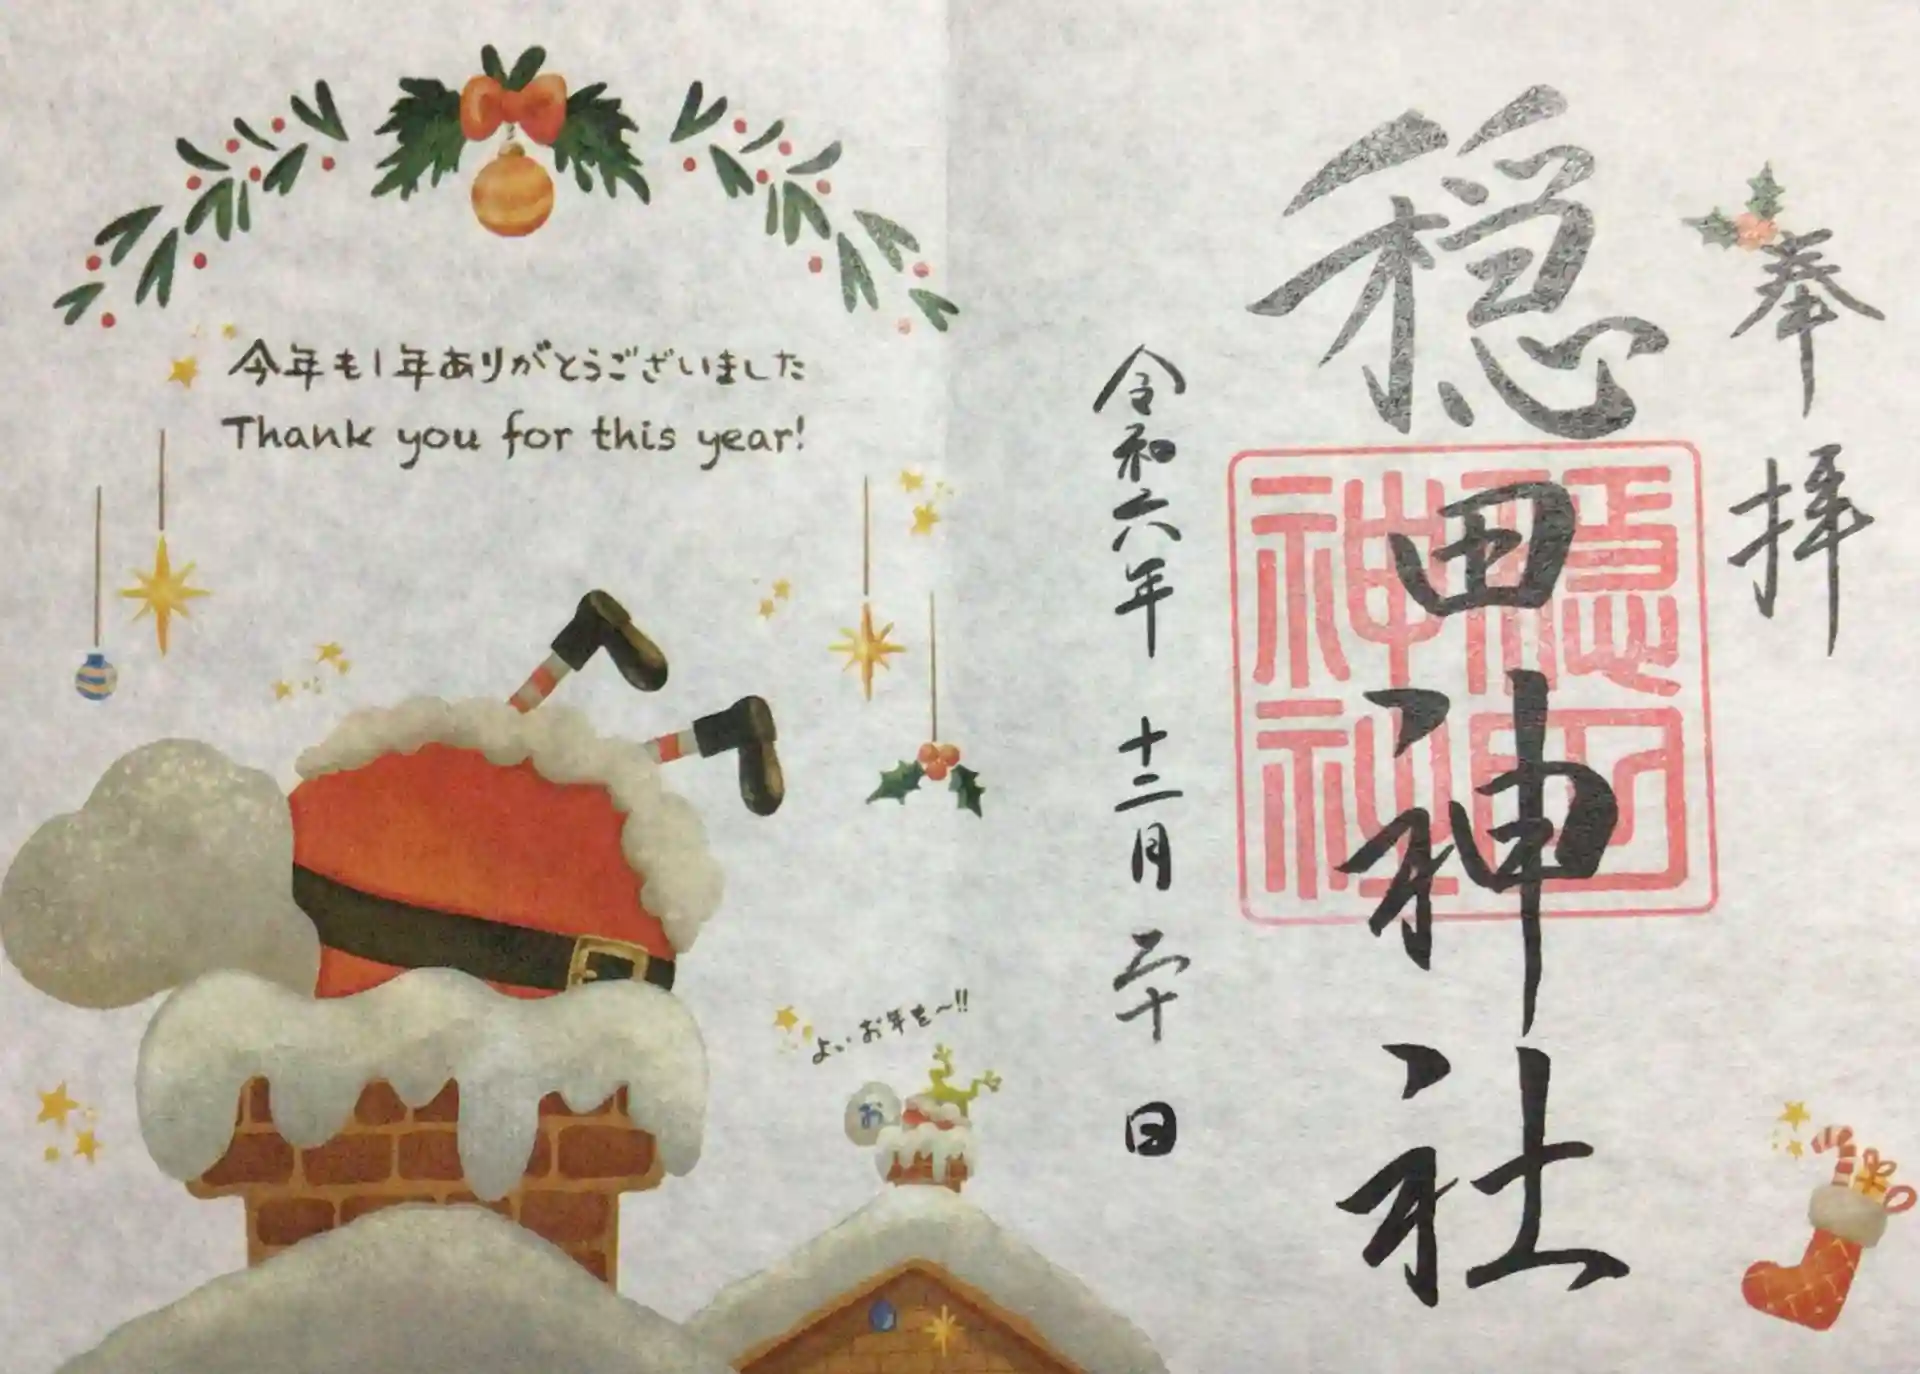 奉拝
穏田神社
穏田神社
令和六年 十二月 二十日
今年も1年ありがとうございました
Thank you for this year!
よいお年を〜!!
お